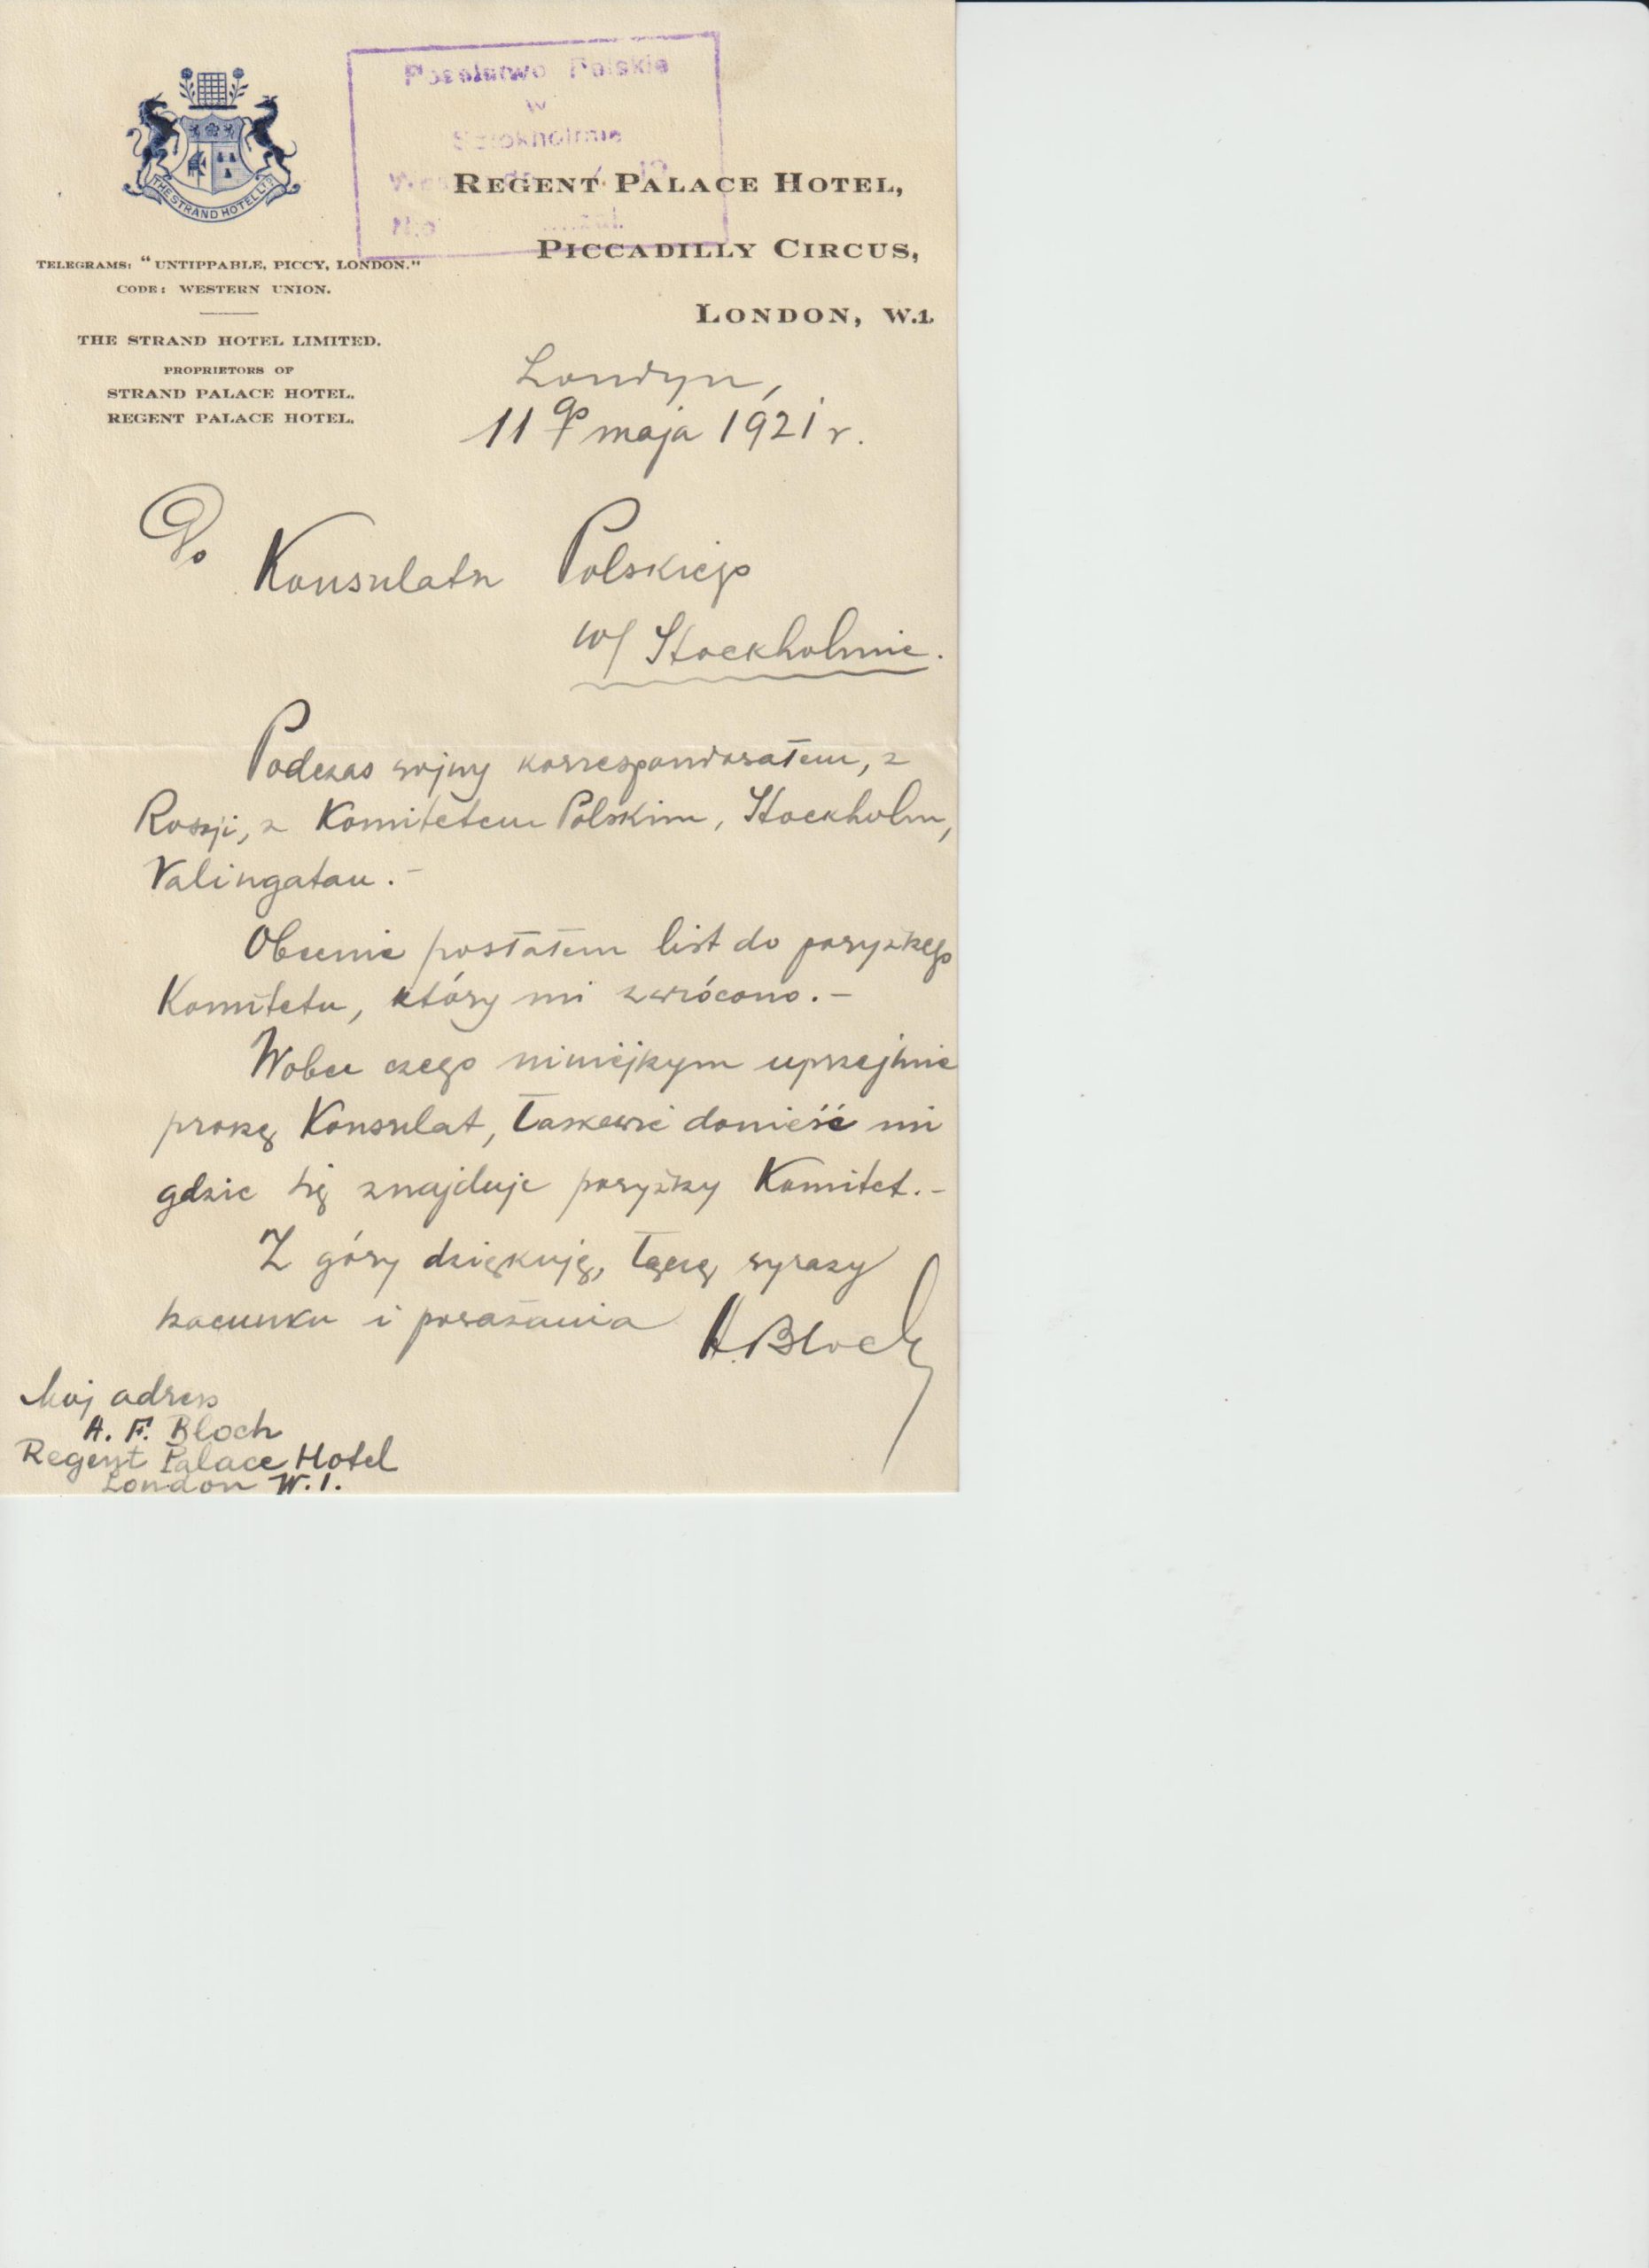 Poselstwo Polskie
w
Sztokholmie
THE STRAND HOTEL LTD
REGENT PALACE HOTEL,
PICCADILLY CIRCUS,
LONDON, W.1.
TELEGRAMS: "UNTIPPABLE, PICCY, LONDON."
CODE: WESTERN UNION.
THE STRAND HOTEL LIMITED.
PROPRIETORS OF
STRAND PALACE HOTEL.
REGENT PALACE HOTEL.
Londyn,
11go maja 1921 r.
Do Konsulatu Polskiego
w/ Stockholmie.
Podczas wojny korrespondowałem, z
Rosji, z Komitetem Polskim, Stockholm,
Valingatan.-
Obecnie posłałem list do powyższego
Komitetu, który mi zwrócono.-
Wobec czego niniejszym uprzejmie
proszę Konsulat, łaskawie donieść mi
gdzie się znajduje powyższy Komitet.-
Z góry dziękuję, łączę wyrazy
szacunku i poważania A. Bloch
Moj adress
A. F. Bloch
Regent Palace Hotel
London W.1.